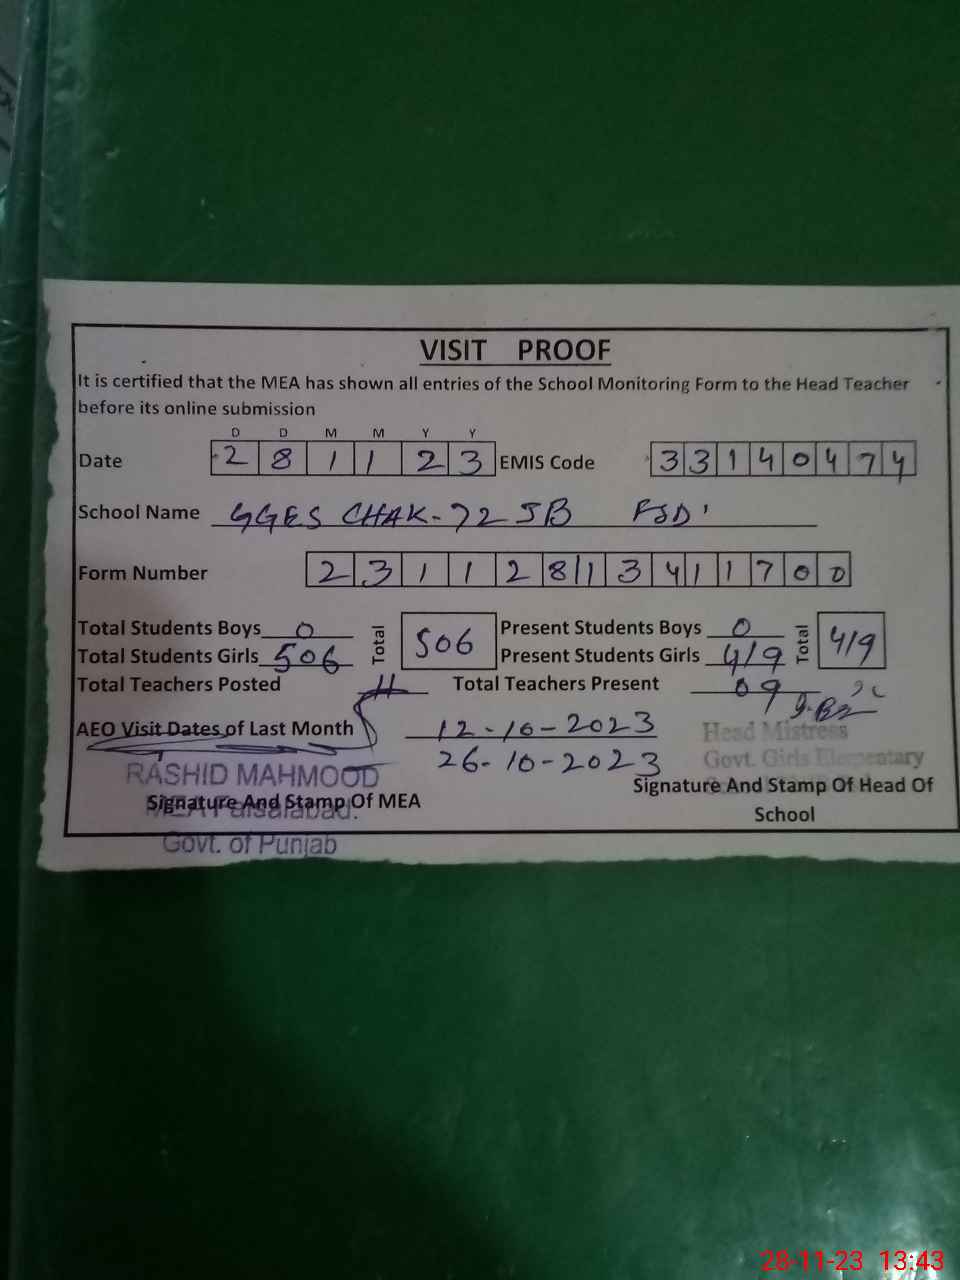 VISIT PROOF
It is certified that the MEA has shown all entries of the School Monitoring Form to the Head Teacher
before its online submission
D D M M Y Y
Date 2 8 1 1 2 3 EMIS Code 3 3 1 4 0 4 7 4
School Name GGES CHAK-72 JB FSD
Form Number 2 3 1 1 2 8 1 3 4 1 1 7 0 0
Total Students Boys 0 Total 506 Present Students Boys 0 Total 419
Total Students Girls 506 Present Students Girls 419
Total Teachers Posted 11 Total Teachers Present 09
AEO Visit Dates of Last Month 12-10-2023
26-10-2023
Head Mistress
Govt. Girls Elementary
RASHID MAHMOOD
MEA Faisalabad.
Govt. of Punjab
Signature And Stamp Of MEA
Signature And Stamp Of Head Of
School
28-11-23 13:43